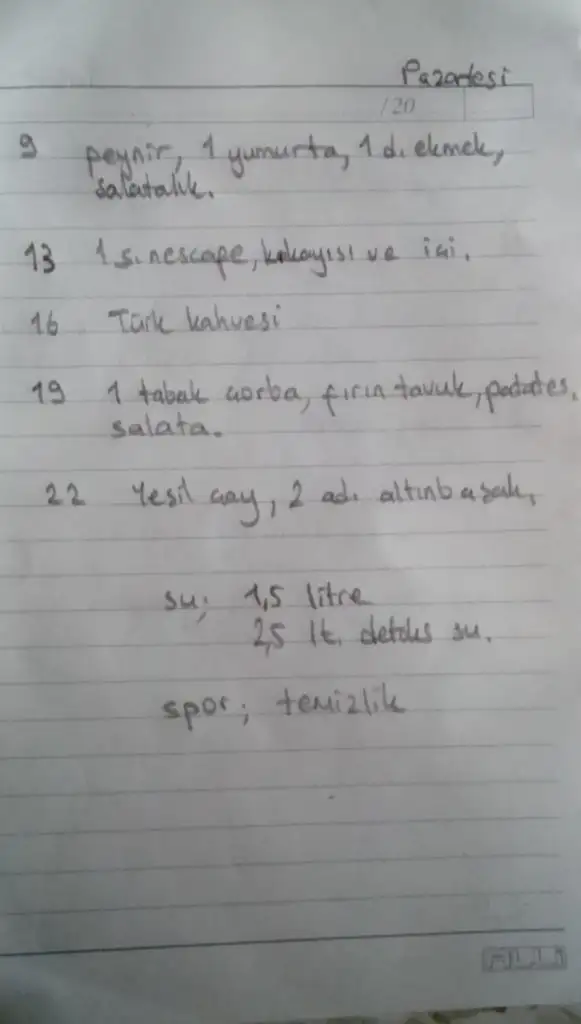 Pazartesi
/20
9 peynir, 1 yumurta, 1 d. ekmek,
salatalık.
13 1 s. nescape, k.kayısı ve içi.
16 Türk kahvesi
19 1 tabak çorba, fırın tavuk, patates,
salata.
22 Yeşil çay, 2 ad. altınbaşak,
su; 1,5 litre
2,5 lt. detoks su.
spor; temizlik